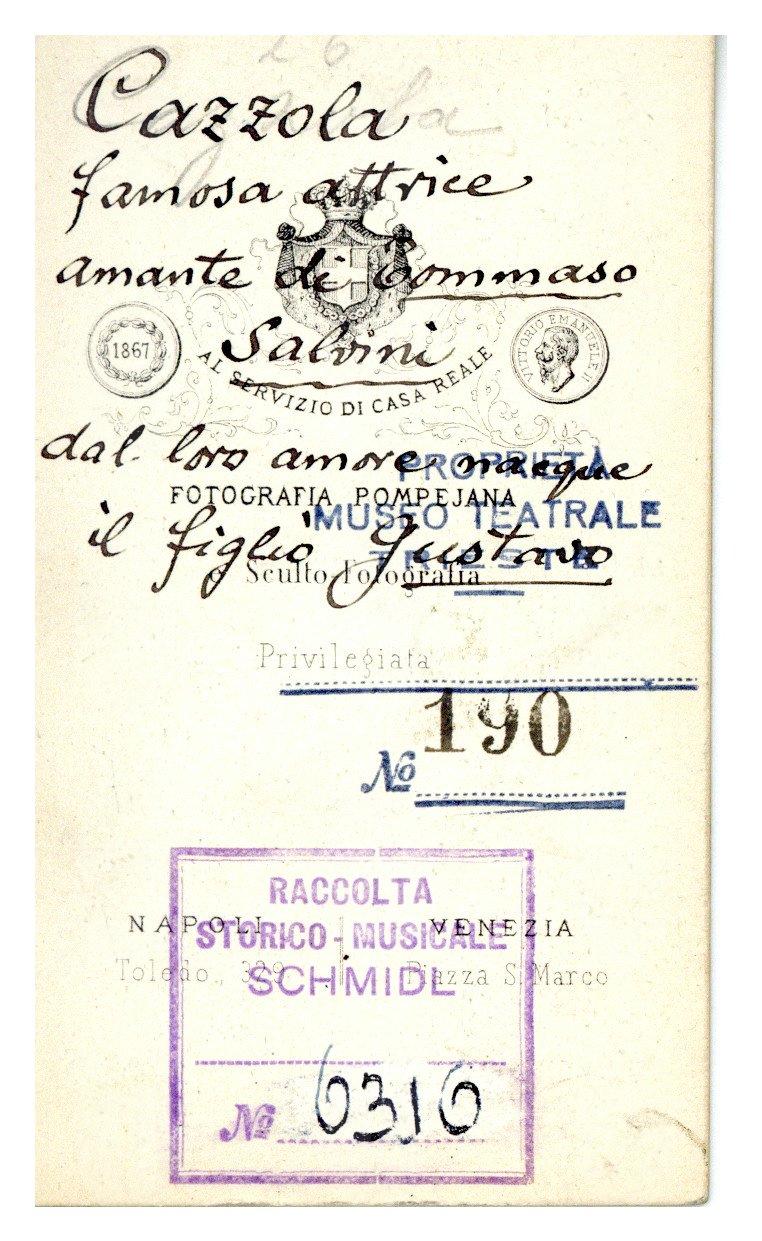 26
Cazzola
famosa attrice
amante di Tommaso
Salvini
1867
VITTORIO EMANUELE II
AL SERVIZIO DI CASA REALE
dal loro amore nacque
PROPRIETÀ
FOTOGRAFIA POMPEJANA
MUSEO TEATRALE
il figlio Gustavo
TRIESTE
e Sculto-Fotografia
Privilegiata
No 190
RACCOLTA
NAPOLI VENEZIA
STORICO-MUSICALE
Toledo, 329 Piazza S. Marco
SCHMIDL
No 6316